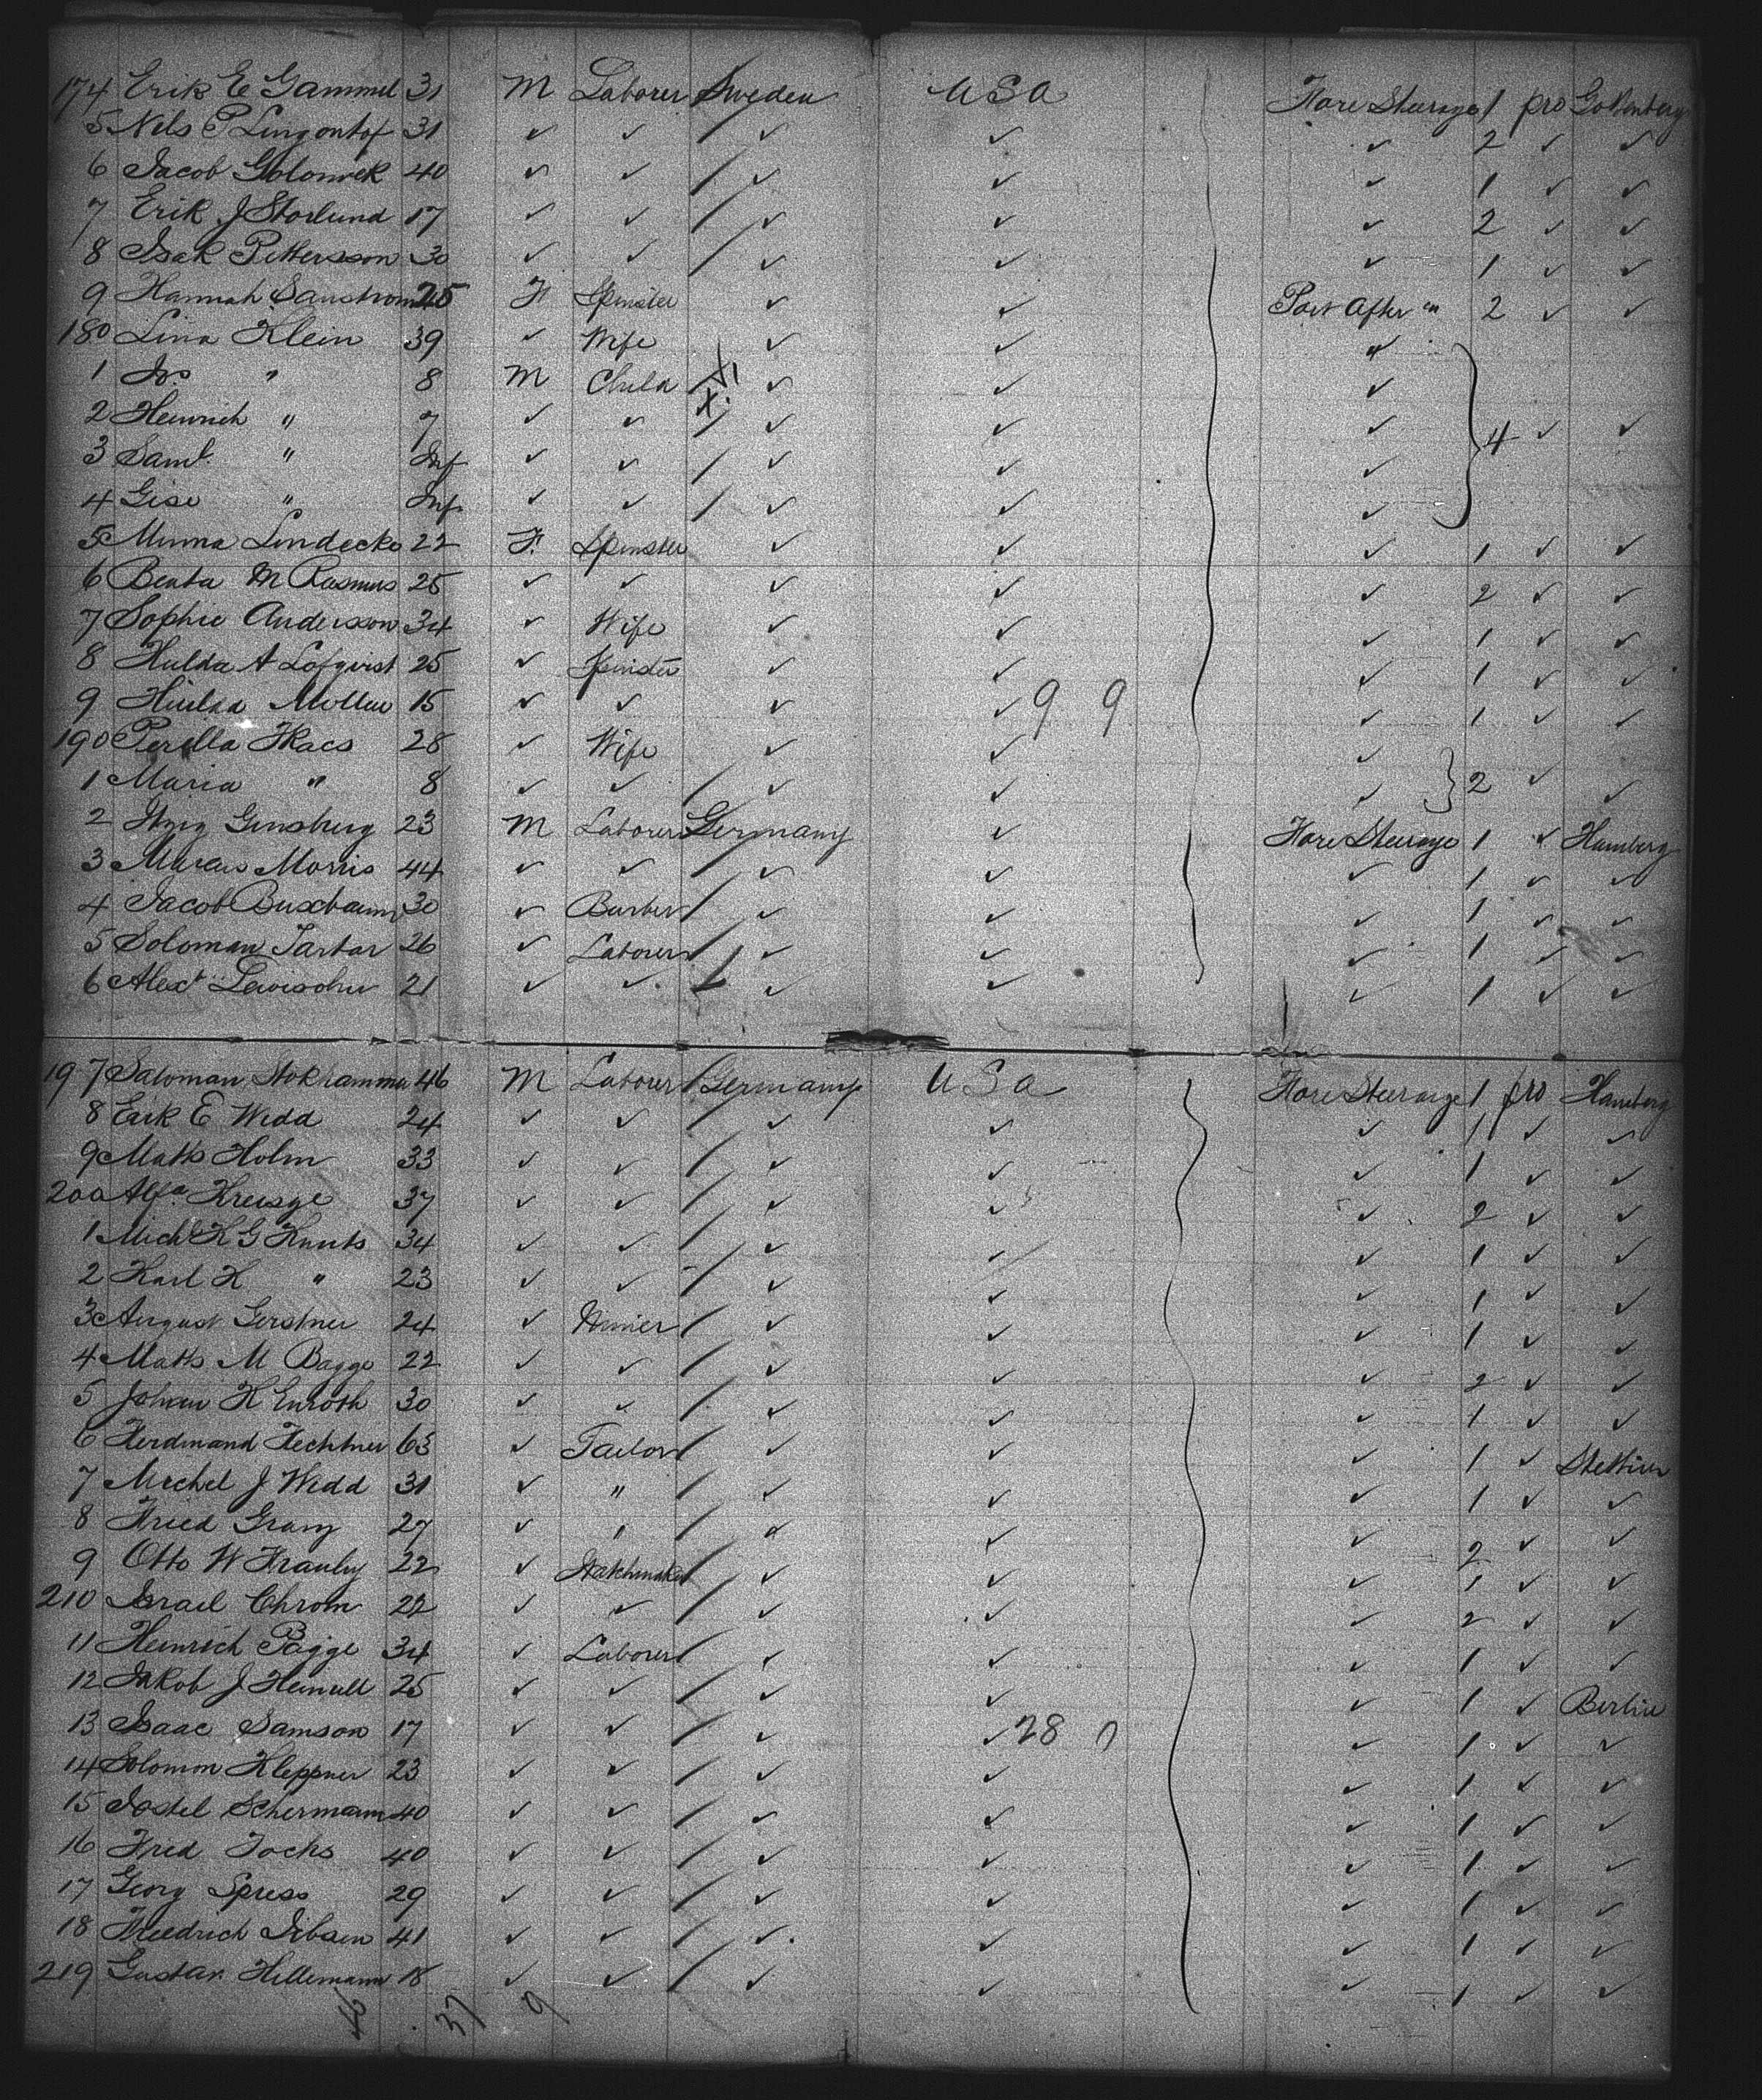 174 Erik E Gammel 31 M Laborer Sweden USA Fore Steerage 1 pro Gothenberg
5 Nels P 31 ✓ ✓ / ✓ ✓ ✓ 2 ✓ ✓
6 Jacob 40 ✓ ✓ / ✓ ✓ ✓ 1 ✓ ✓
7 Erik J Storlund 17 ✓ ✓ / ✓ ✓ ✓ 2 ✓ ✓
8 Isak Pettersson 30 ✓ ✓ / ✓ ✓ ✓ 1 ✓ ✓
9 Hannah Sanstrom 25 F Spinster ✓ ✓ Port After " 2 ✓ ✓
180 Lina Klein 39 ✓ Wife ✓ ✓ "
1 " 8 M Child X! ✓ ✓ ✓
2 Heinrich " 7 ✓ " X. / ✓ ✓ ✓ 4 ✓ ✓
3 Saml. " Inf ✓ ✓ / ✓ ✓ ✓
4 Gise " Inf ✓ ✓ / ✓ ✓ ✓
5 Minna Lindecke 22 F. Spinster ✓ ✓ ✓ 1 ✓ ✓
6 Beata M Rasmus 25 ✓ ✓ ✓ ✓ ✓ 2 ✓ ✓
7 Sophie Andersson 34 ✓ Wife ✓ ✓ ✓ 1 ✓ ✓
8 Hulda A Lofqvist 25 ✓ Spinster ✓ ✓ ✓ 1 ✓ ✓
9 Hulda 15 ✓ ✓ ✓ ✓ 9 9 ✓ 1 ✓ ✓
190 28 ✓ Wife ✓ ✓ ✓
1 Maria " 8 ✓ ✓ / ✓ ✓ ✓ 2 ✓ ✓
2 Itzig Ginsberg 23 M Laborer Germany ✓ Fore Steerage 1 ✓ Hamberg
3 Marcus Morris 44 ✓ ✓ / ✓ ✓ ✓ 1 ✓ ✓
4 Jacob Buxbaum 30 ✓ Barber / ✓ ✓ ✓ 1 ✓ ✓
5 Soloman Tartar 26 ✓ Laborer / ✓ ✓ ✓ 1 ✓ ✓
6 Alext Lewisohn 21 ✓ ✓ ✓ ✓ ✓ 1 ✓ ✓
197 Saloman 46 M Laborer / Germany USA Fore Steerage 1 pro Hamberg
8 Erik E Wedd 24 ✓ ✓ / ✓ ✓ ✓ 1 ✓ ✓
9 Matts Holm 33 ✓ ✓ / ✓ ✓ ✓ 1 ✓ ✓
200 Alfa 37 ✓ ✓ / ✓ ✓ ✓ 2 ✓ ✓
1 Michl K G Knuts 34 ✓ ✓ / ✓ ✓ ✓ 1 ✓ ✓
2 Karl K " 23 ✓ ✓ / ✓ ✓ ✓ 1 ✓ ✓
3 August Gerstner 24 ✓ / ✓ ✓ ✓ 1 ✓ ✓
4 Matts M Bagge 22 ✓ ✓ / ✓ ✓ ✓ 2 ✓ ✓
5 Johan K Enroth 30 ✓ ✓ / ✓ ✓ ✓ 1 ✓ ✓
6 Ferdinand Fechtner 63 ✓ Tailor / ✓ ✓ ✓ 1 ✓ Stettin
7 Michel J Wedd 31 ✓ " / ✓ ✓ ✓ 1 ✓ ✓
8 Fried 27 ✓ " / ✓ ✓ ✓ 2 ✓ ✓
9 Otto W 22 ✓ Watchmaker / ✓ ✓ ✓ 1 ✓ ✓
210 Israel Chrom 22 ✓ ✓ / ✓ ✓ ✓ 2 ✓ ✓
11 Heinrich Pagge 34 ✓ Laborer / ✓ ✓ ✓ 1 ✓ ✓
12 Jakob J 25 ✓ ✓ / ✓ ✓ ✓ 1 ✓ Berlin
13 Isaac Samson 17 ✓ ✓ / ✓ ✓ 28 0 ✓ 1 ✓ ✓
14 Solomon Kleppner 23 ✓ ✓ / ✓ ✓ ✓ 1 ✓ ✓
15 Schermann 40 ✓ ✓ / ✓ ✓ ✓ 1 ✓ ✓
16 Fried Jochs 40 ✓ ✓ / ✓ ✓ ✓ 1 ✓ ✓
17 Georg Spress 29 ✓ ✓ / ✓ ✓ ✓ 1 ✓ ✓
18 Friedrich Sibsen 41 ✓ ✓ / ✓ ✓ ✓ 1 ✓ ✓
219 Gustav. Hillemann 18 ✓ ✓ / ✓ ✓ ✓ 1 ✓ ✓
37 9